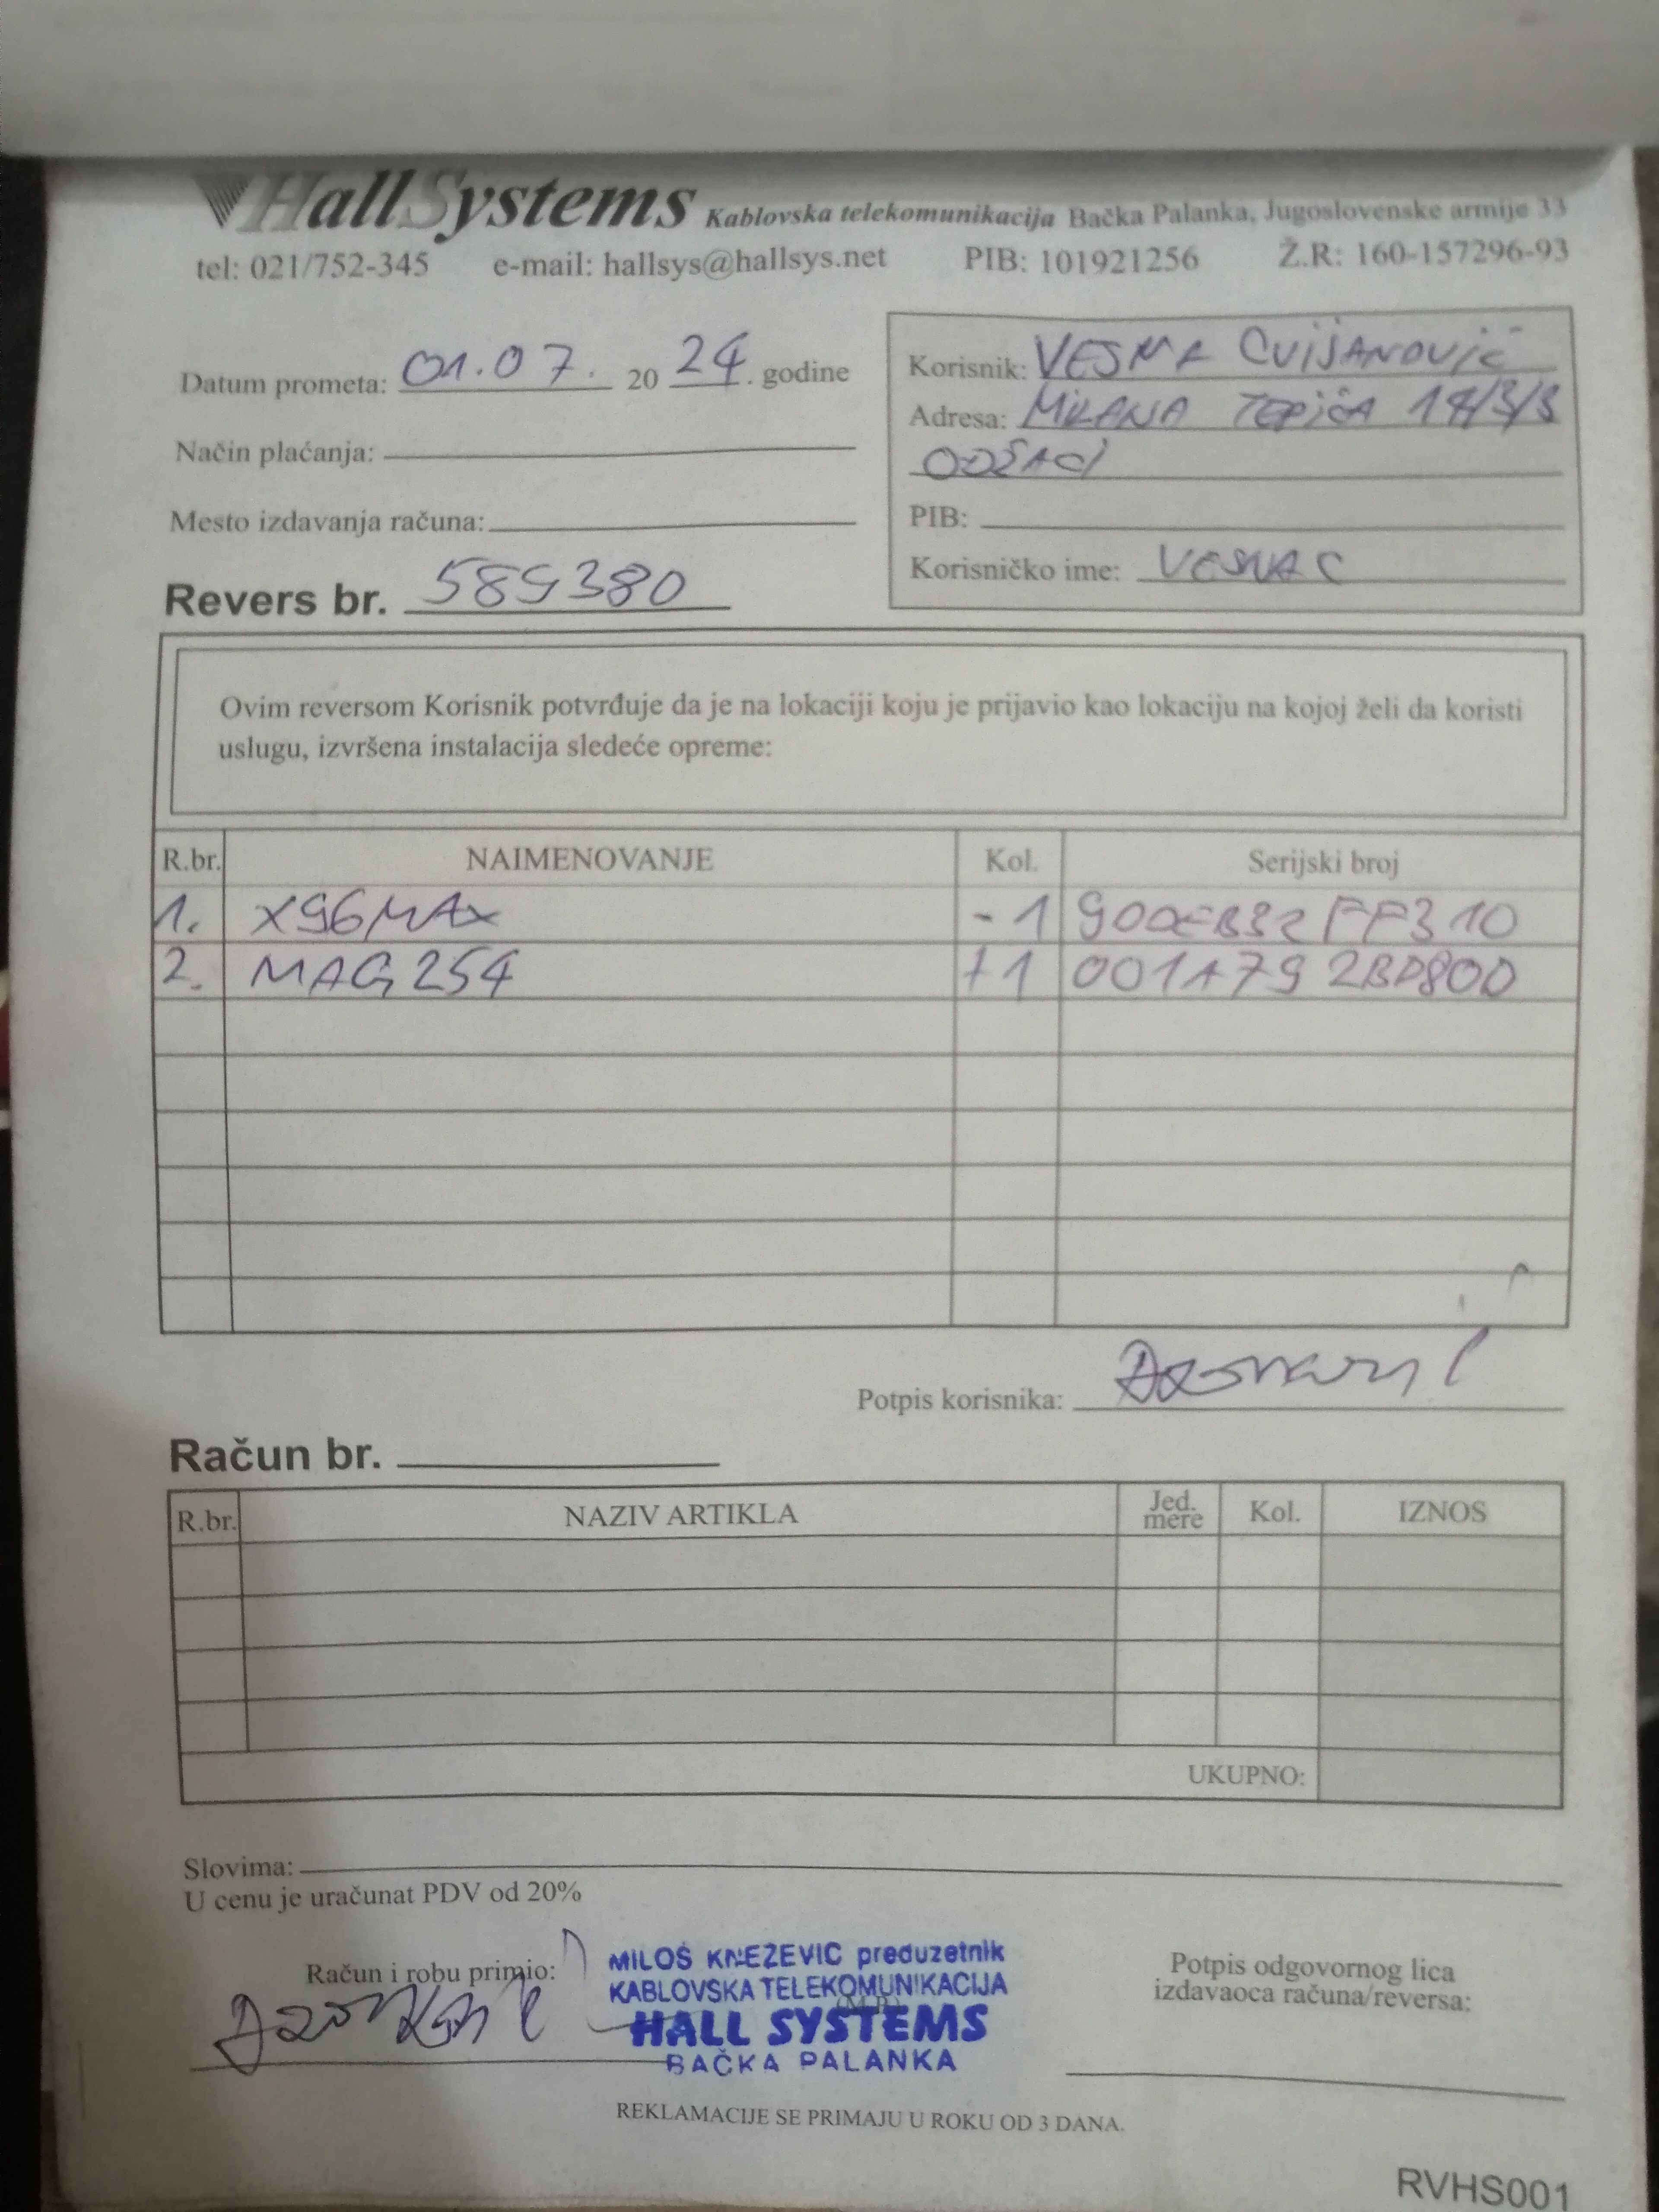 HallSystems Kablovska telekomunikacija Bačka Palanka, Jugoslovenske armije 33
tel: 021/752-345 e-mail: hallsys@hallsys.net PIB: 101921256 Ž.R: 160-157296-93
Datum prometa: 01.07. 2024. godine
Način plaćanja:
Mesto izdavanja računa:
Revers br. 589380
Korisnik: VESNA CVIJANOVIĆ
Adresa: MILANA TEPIĆA 14/3/3
ODŽACI
PIB:
Korisničko ime: VESNAC
Ovim reversom Korisnik potvrđuje da je na lokaciji koju je prijavio kao lokaciju na kojoj želi da koristi
uslugu, izvršena instalacija sledeće opreme:
R.br. NAIMENOVANJE Kol. Serijski broj
1. X96MAX -1
2. MAG254 +1 001A79 2BD80D
Potpis korisnika:
Račun br.
R.br. NAZIV ARTIKLA Jed. mere Kol. IZNOS
UKUPNO:
Slovima:
U cenu je uračunat PDV od 20%
Račun i robu primio:
MILOŠ KNEŽEVIC preduzetnik
KABLOVSKA TELEKOMUNIKACIJA
(M.P.)
HALL SYSTEMS
BAČKA PALANKA
Potpis odgovornog lica
izdavaoca računa/reversa:
REKLAMACIJE SE PRIMAJU U ROKU OD 3 DANA.
RVHS001